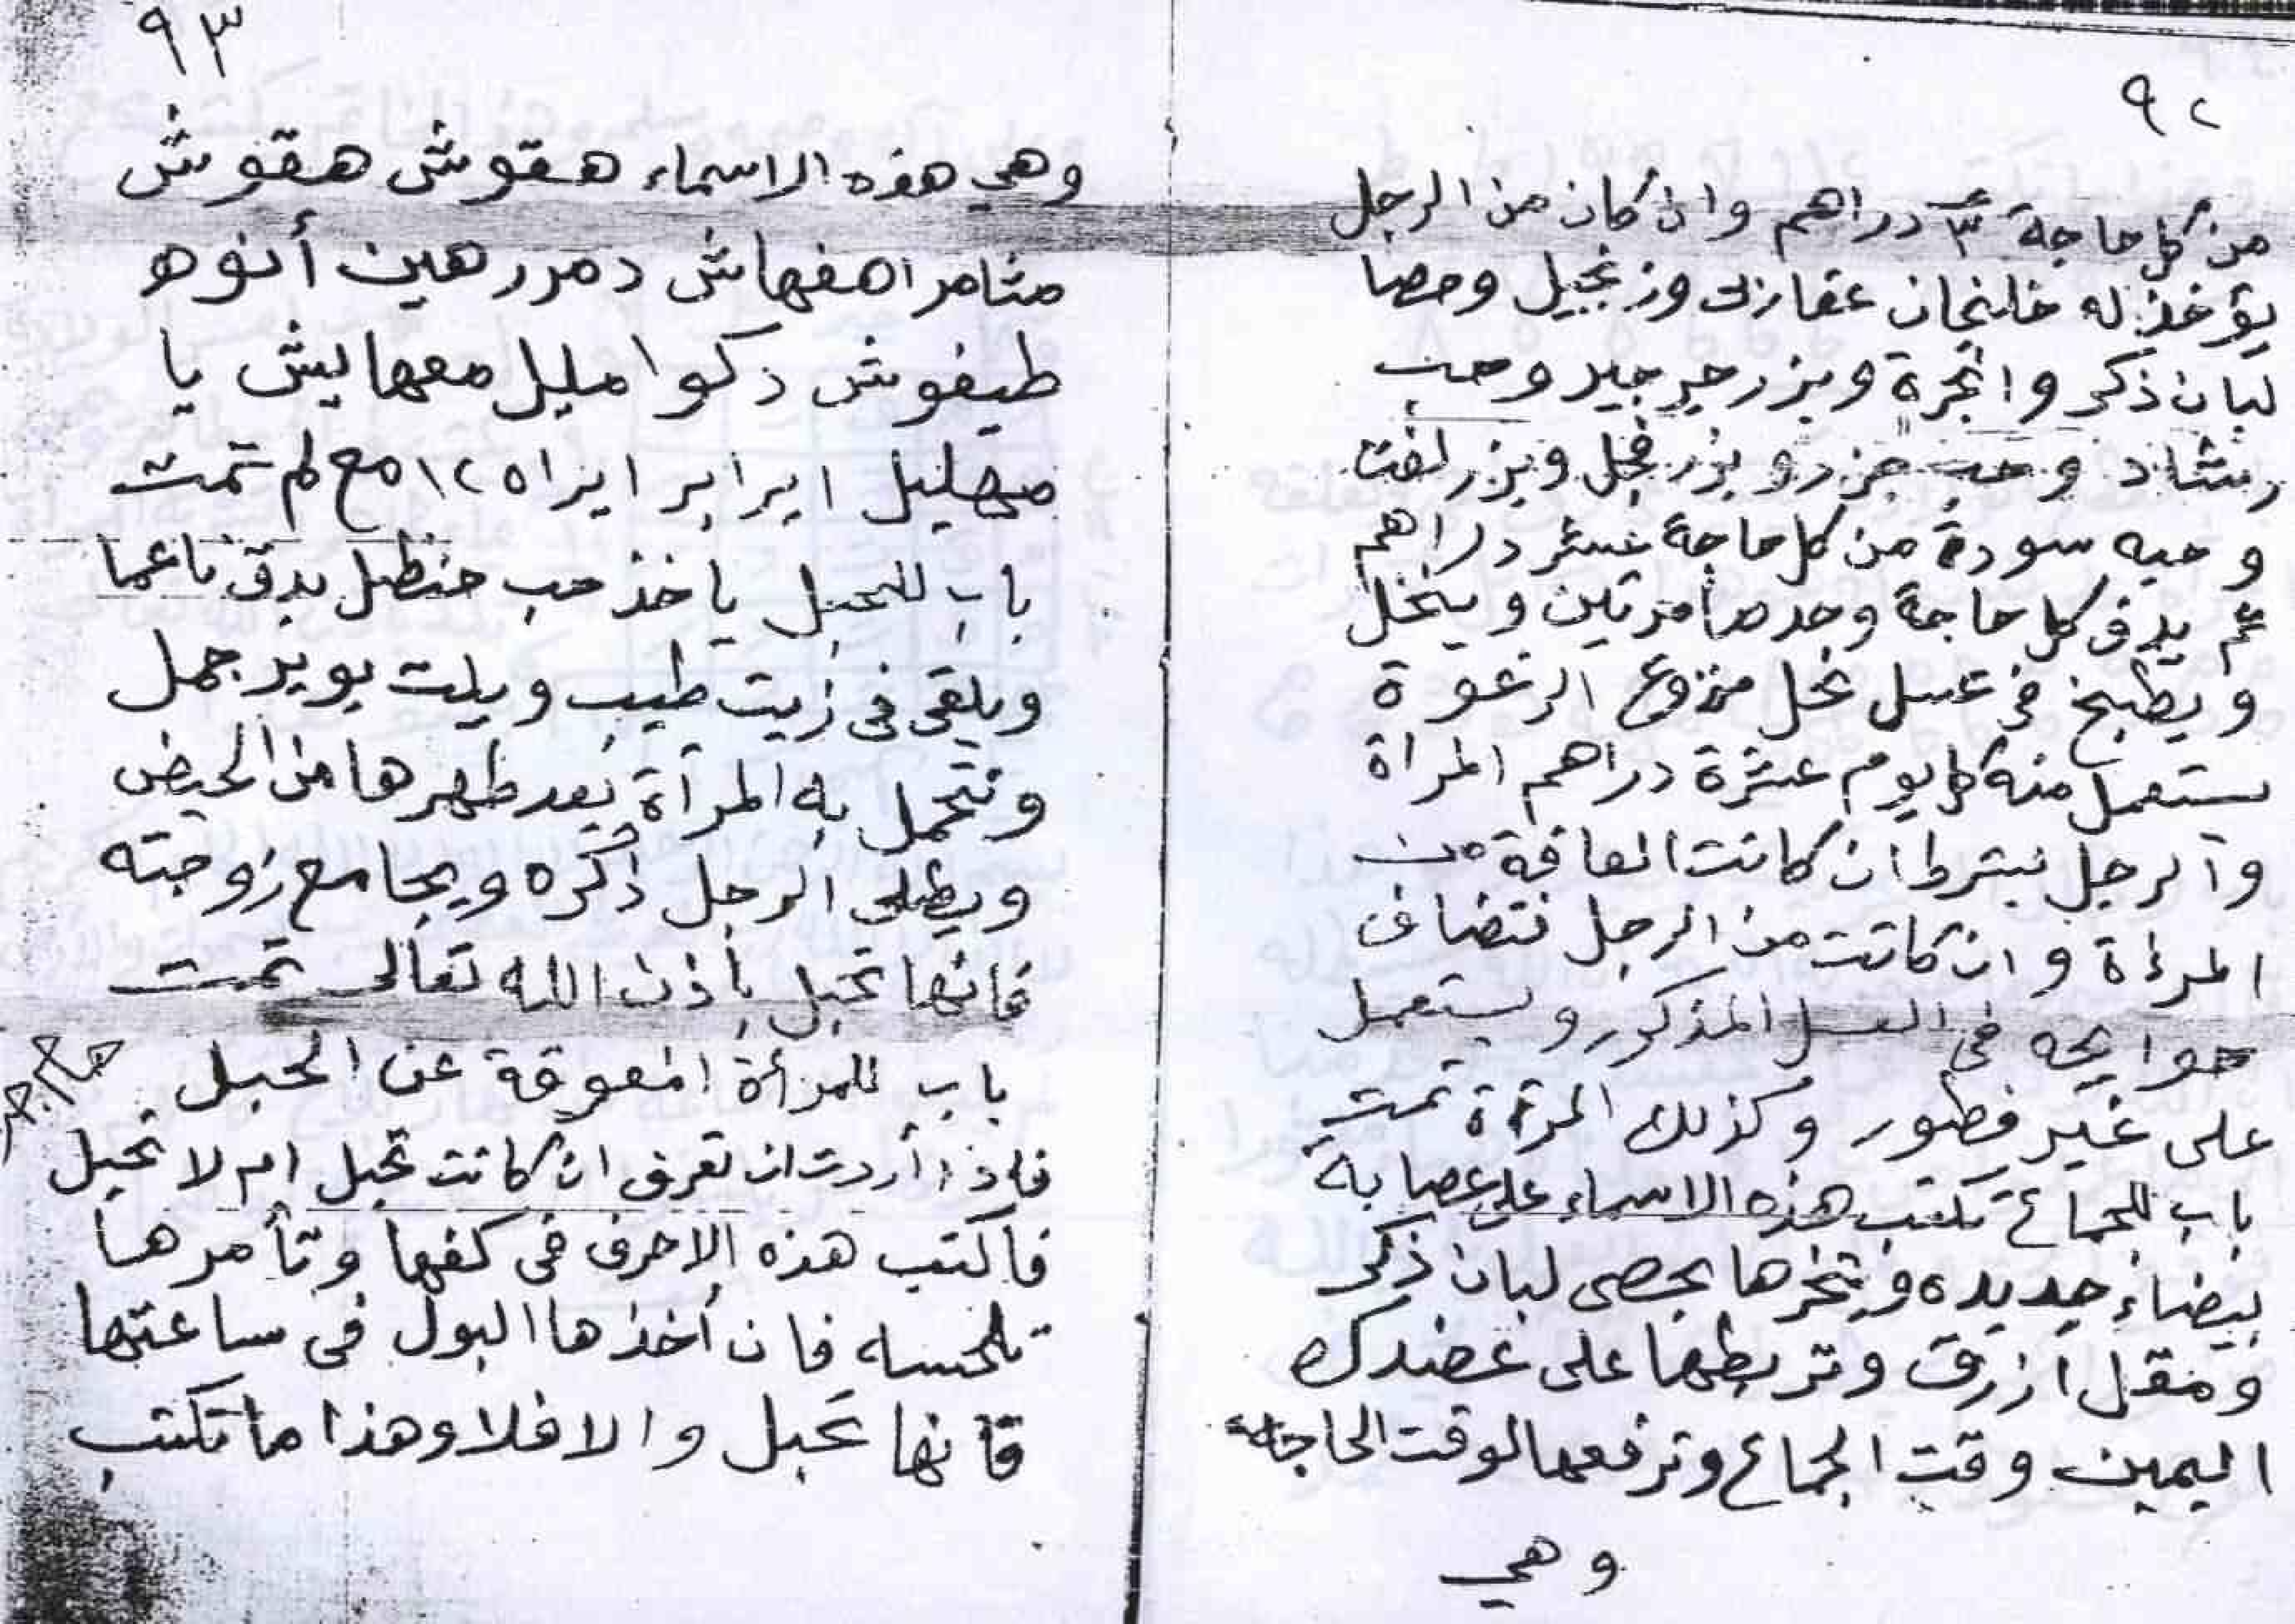 ٩٢
من كل حاجة ٣ دراهم وان كان من الرجل
يؤخذ له خلنجان عقاربى وزنجبيل وحصا
لبان ذكر وانجرة وبزر جرجير وحب
رشاد وحب جزر وبزر فجل وبزر لفت
وحبه سودة من كل حاجة عشر دراهم
ثم يدق كل حاجة وحدها مرتين وينخل
ويطبخ فى عسل نحل منزوع الرغوة
يستعمل منه كل يوم عشرة دراهم المرأة
وآلرجل بشرط ان كانت العاقة من
المرءاة وان كانت من الرجل فتضاف
حوايجه فى العسل المذكور ويستعمل
على غير فطور وكذلك المرءة تمت
باب للجماع تكتب هذه الاسماء على عصابة
بيضاء جديده وتبخرها بحصى لبان ذكر
ومقل أزرق وتربطها على عضدك
اليمين وقت الجماع وترفعها لوقت الحاجة
وهي
٩٣
وهي هذه الاسماء هقوش هقوش
مثامر اهفهاش دمرر هين أنوه
طيفوش دكوا مليل معهاليش يا
مهليل ايرا ير ايراه ١٢ مع لم تمت
باب للحبل ياخذ حب حنظل يدق ناعما
ويلقى فى زيت طيب ويلت بوبر جمل
وتتحمل به المرآة بعد طهرها من الحيض
ويطلى الرجل ذكره ويجامع زوجته
فانها تحبل بأذن الله تعالى تمت
باب للمرأة المعوقة عن الحبل
فاذا أردت ان تعرف ان كانت تحبل ام لا تحبل
فأكتب هذه الاحرف فى كفها وتأمرها
تلحسه فان أخذها البول فى ساعتها
فأنها تحبل والا فلا وهذا ما تكتب